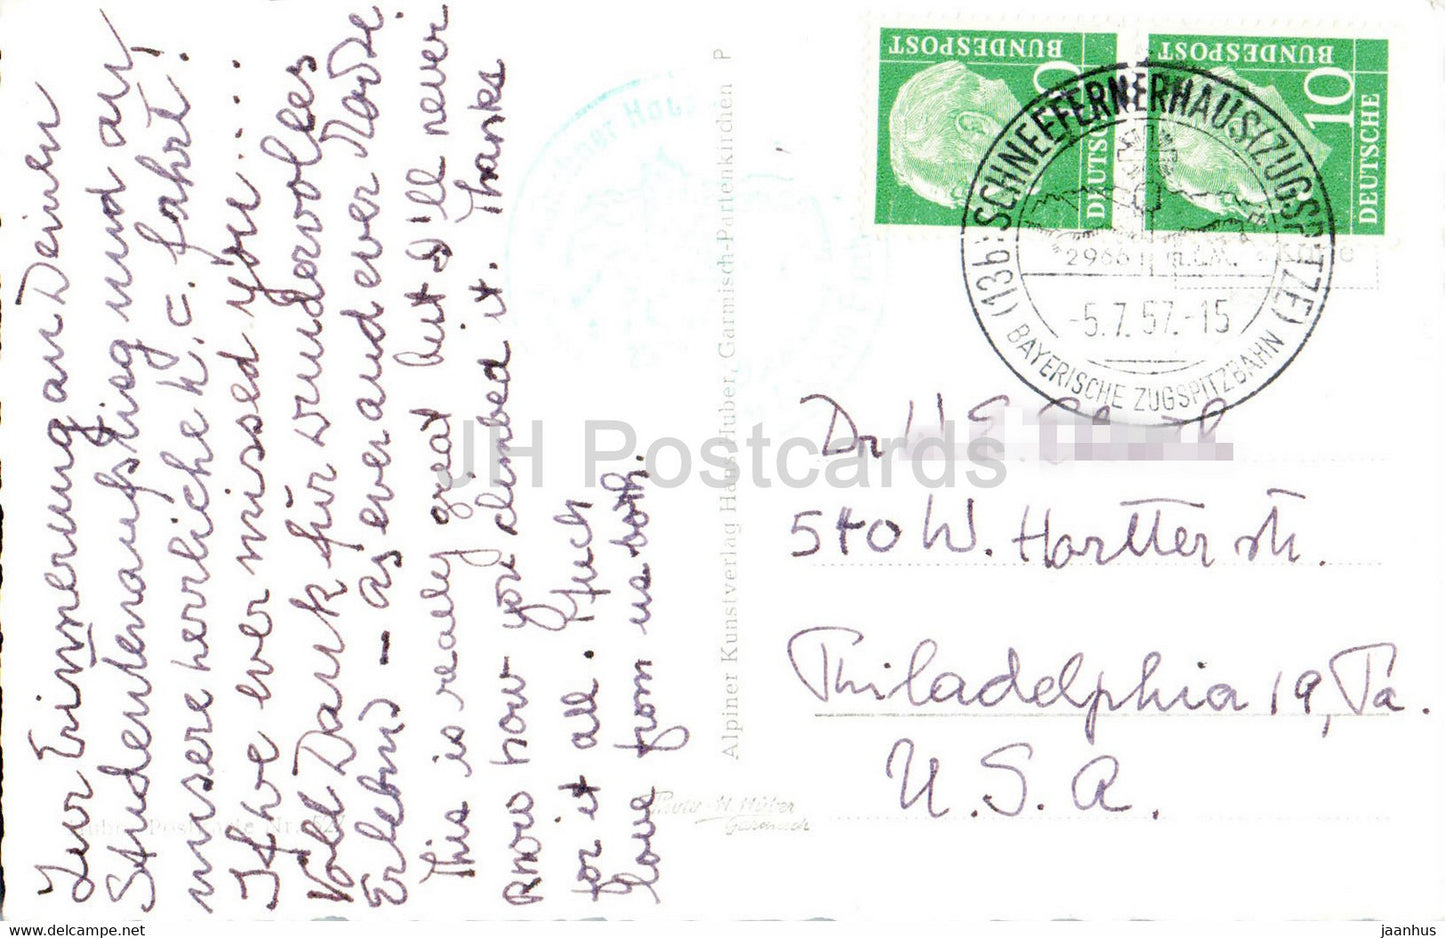 Zur Erinnerung an Deinen
Studentenaufstieg und an
unsere herrliche K. = fahrt!
If we ever missed you....
Voll Dank für wundervolles
Erlebnis - as ever and ever
This is really great but I'll never
know how you climbed it. Thanks
for it all. Much
love from us both.
Alpiner Kunstverlag Hans Huber, Garmisch-Partenkirchen P
Photo-W. Hüber
Garmisch
DEUTSCHE
BUNDESPOST
10
DEUTSCHE
BUNDESPOST
10
(13b) SCHNEEFERNERHAUS (ZUGSPITZE)
2966 m ü.d.M.
-5.7.57.-15
BAYERISCHE ZUGSPITZBAHN
Dr. W E
540 W. Hortter str.
Philadelphia 19, Pa.
U.S.A.
JH Postcards
www.hippostcard.com
jaanhus